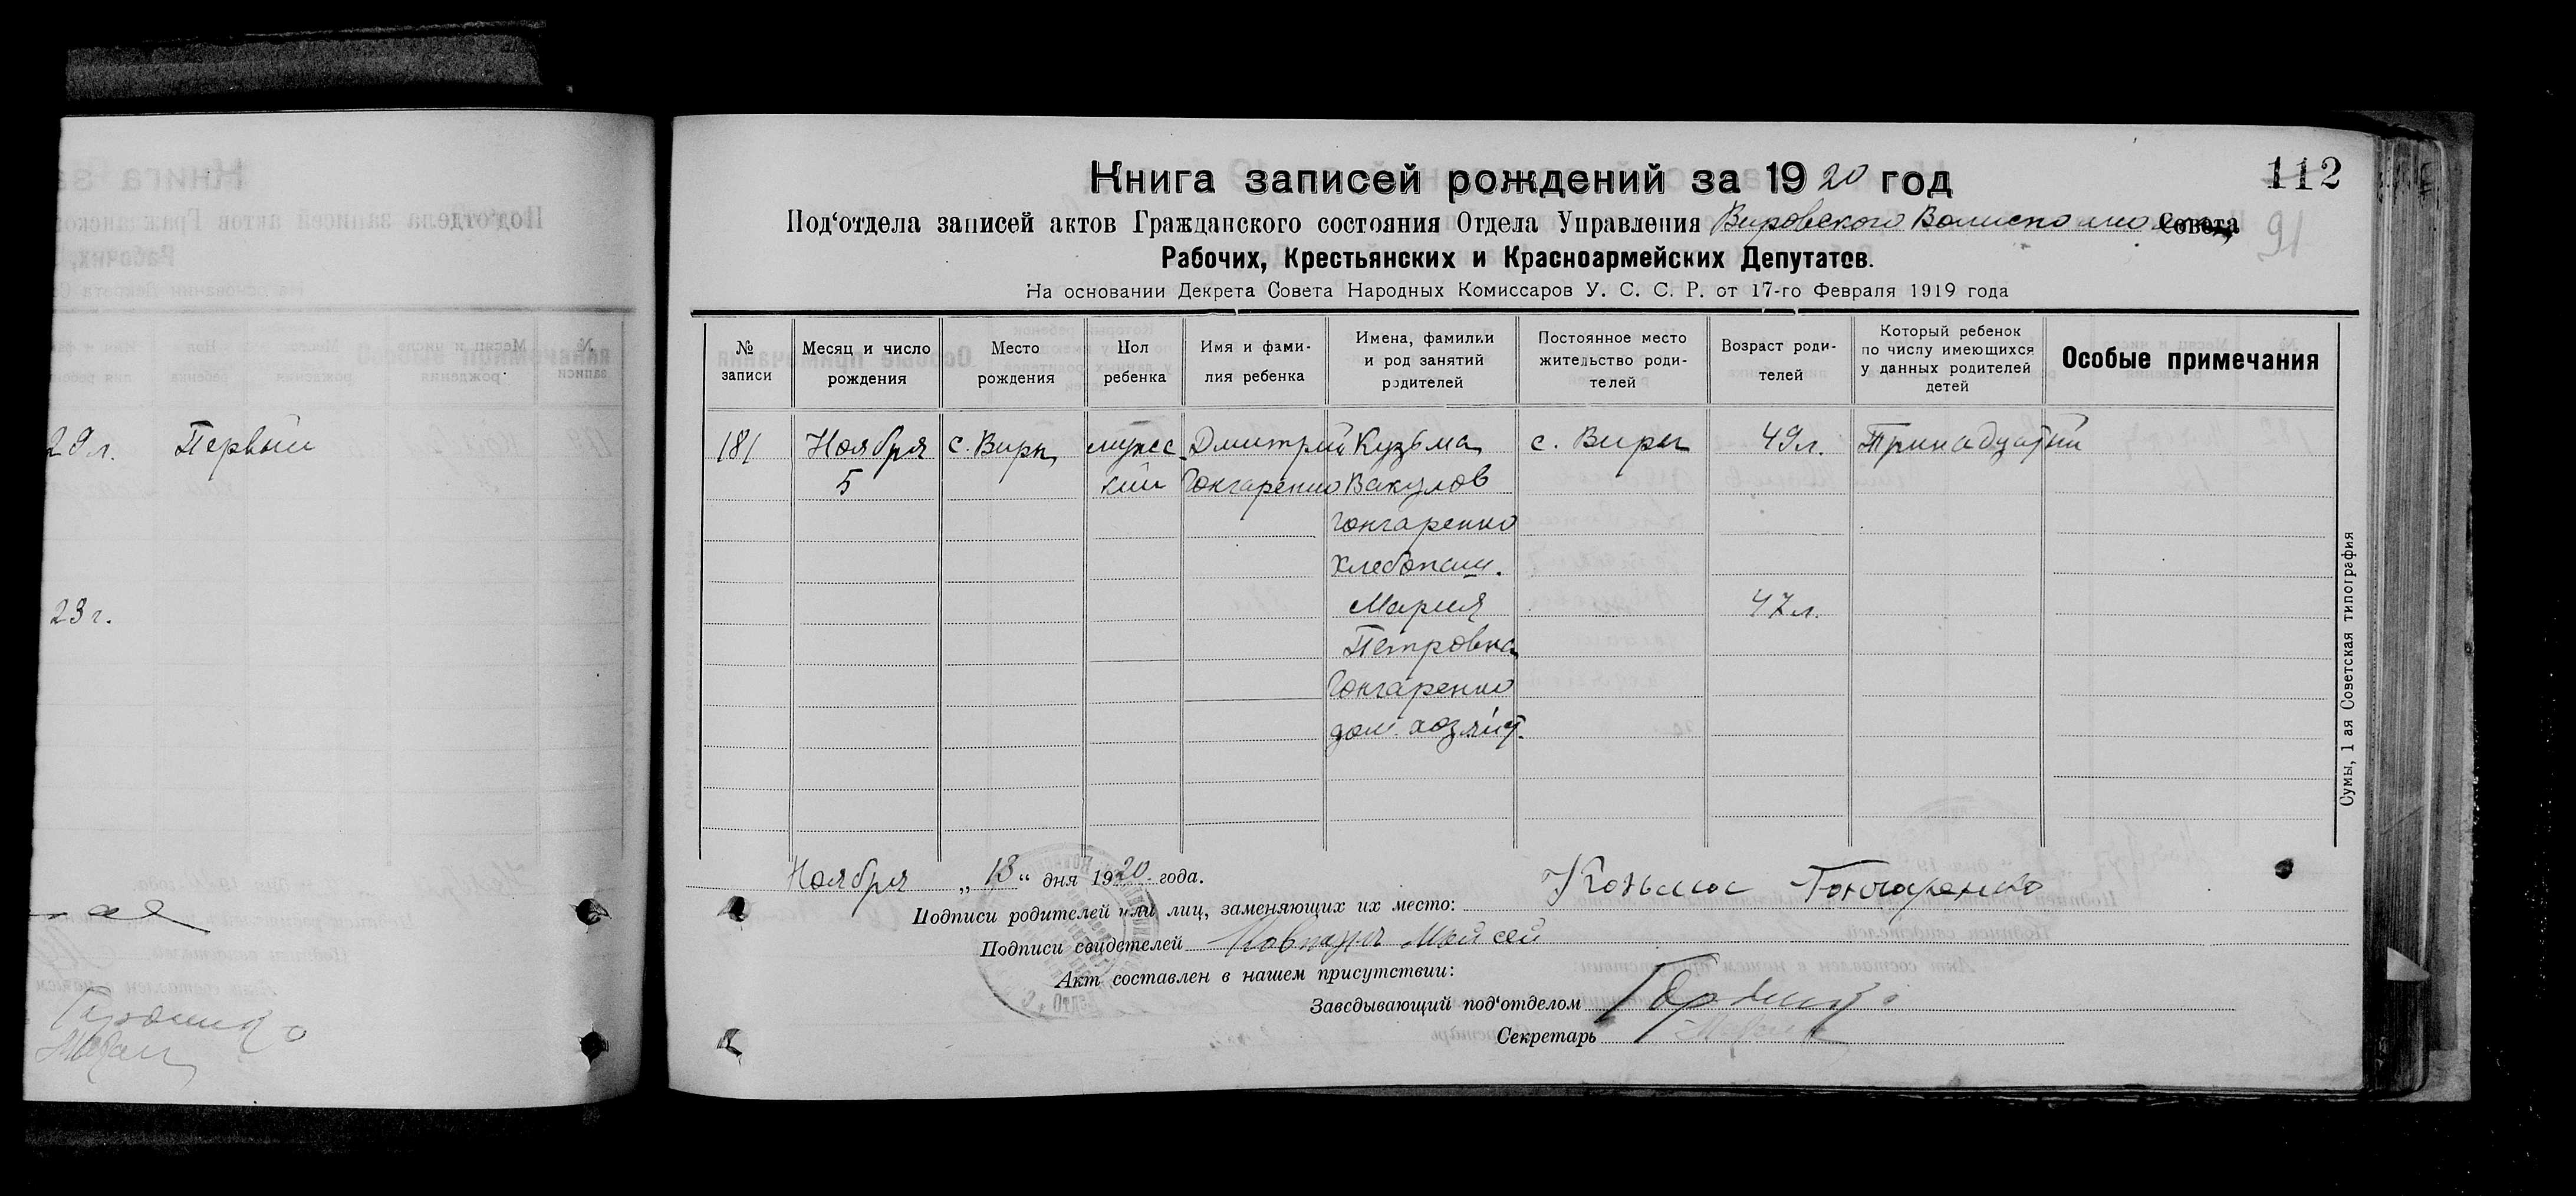 29 л. Первый
23 г.
112
91
Книга записей рождений за 1920 год
Под‘отдела записей актов Гражданского состояния Отдела Управления Вировского Волисполко Совета
Рабочих, Крестьянских и Красноармейских Депутатов.
На основании Декрета Совета Народных Комиссаров У. С. С. Р. от 17-го Февраля 1919 года
№ записи
Месяц и число рождения
Место рождения
Пол ребенка
Имя и фами- лия ребенка
Имена, фамилии и род занятий родителей
Постоянное место жительство роди- телей
Возраст роди- телей
Который ребенок по числу имеющихся у данных родителей детей
Особые примечания
181 Ноября с. Виры мужс Дмитрий Кузьма с. Виры 49 л. Тринадцатый
5 кий Гончаренко Вакулов
Гончаренко
хлебопаш.
Мария 47 л.
Петровна
Гончаренко
дом. хозяйст.
Ноября „ 13 “ дня 1920 года.
Подписи родителей или лиц, заменяющих их место: Козьма Гончаренко
Подписи свидетелей Мойсей
Акт составлен в нашем присутствии:
Заведывающий под‘отделом
Секретарь
Сумы, 1 ая Советская типография